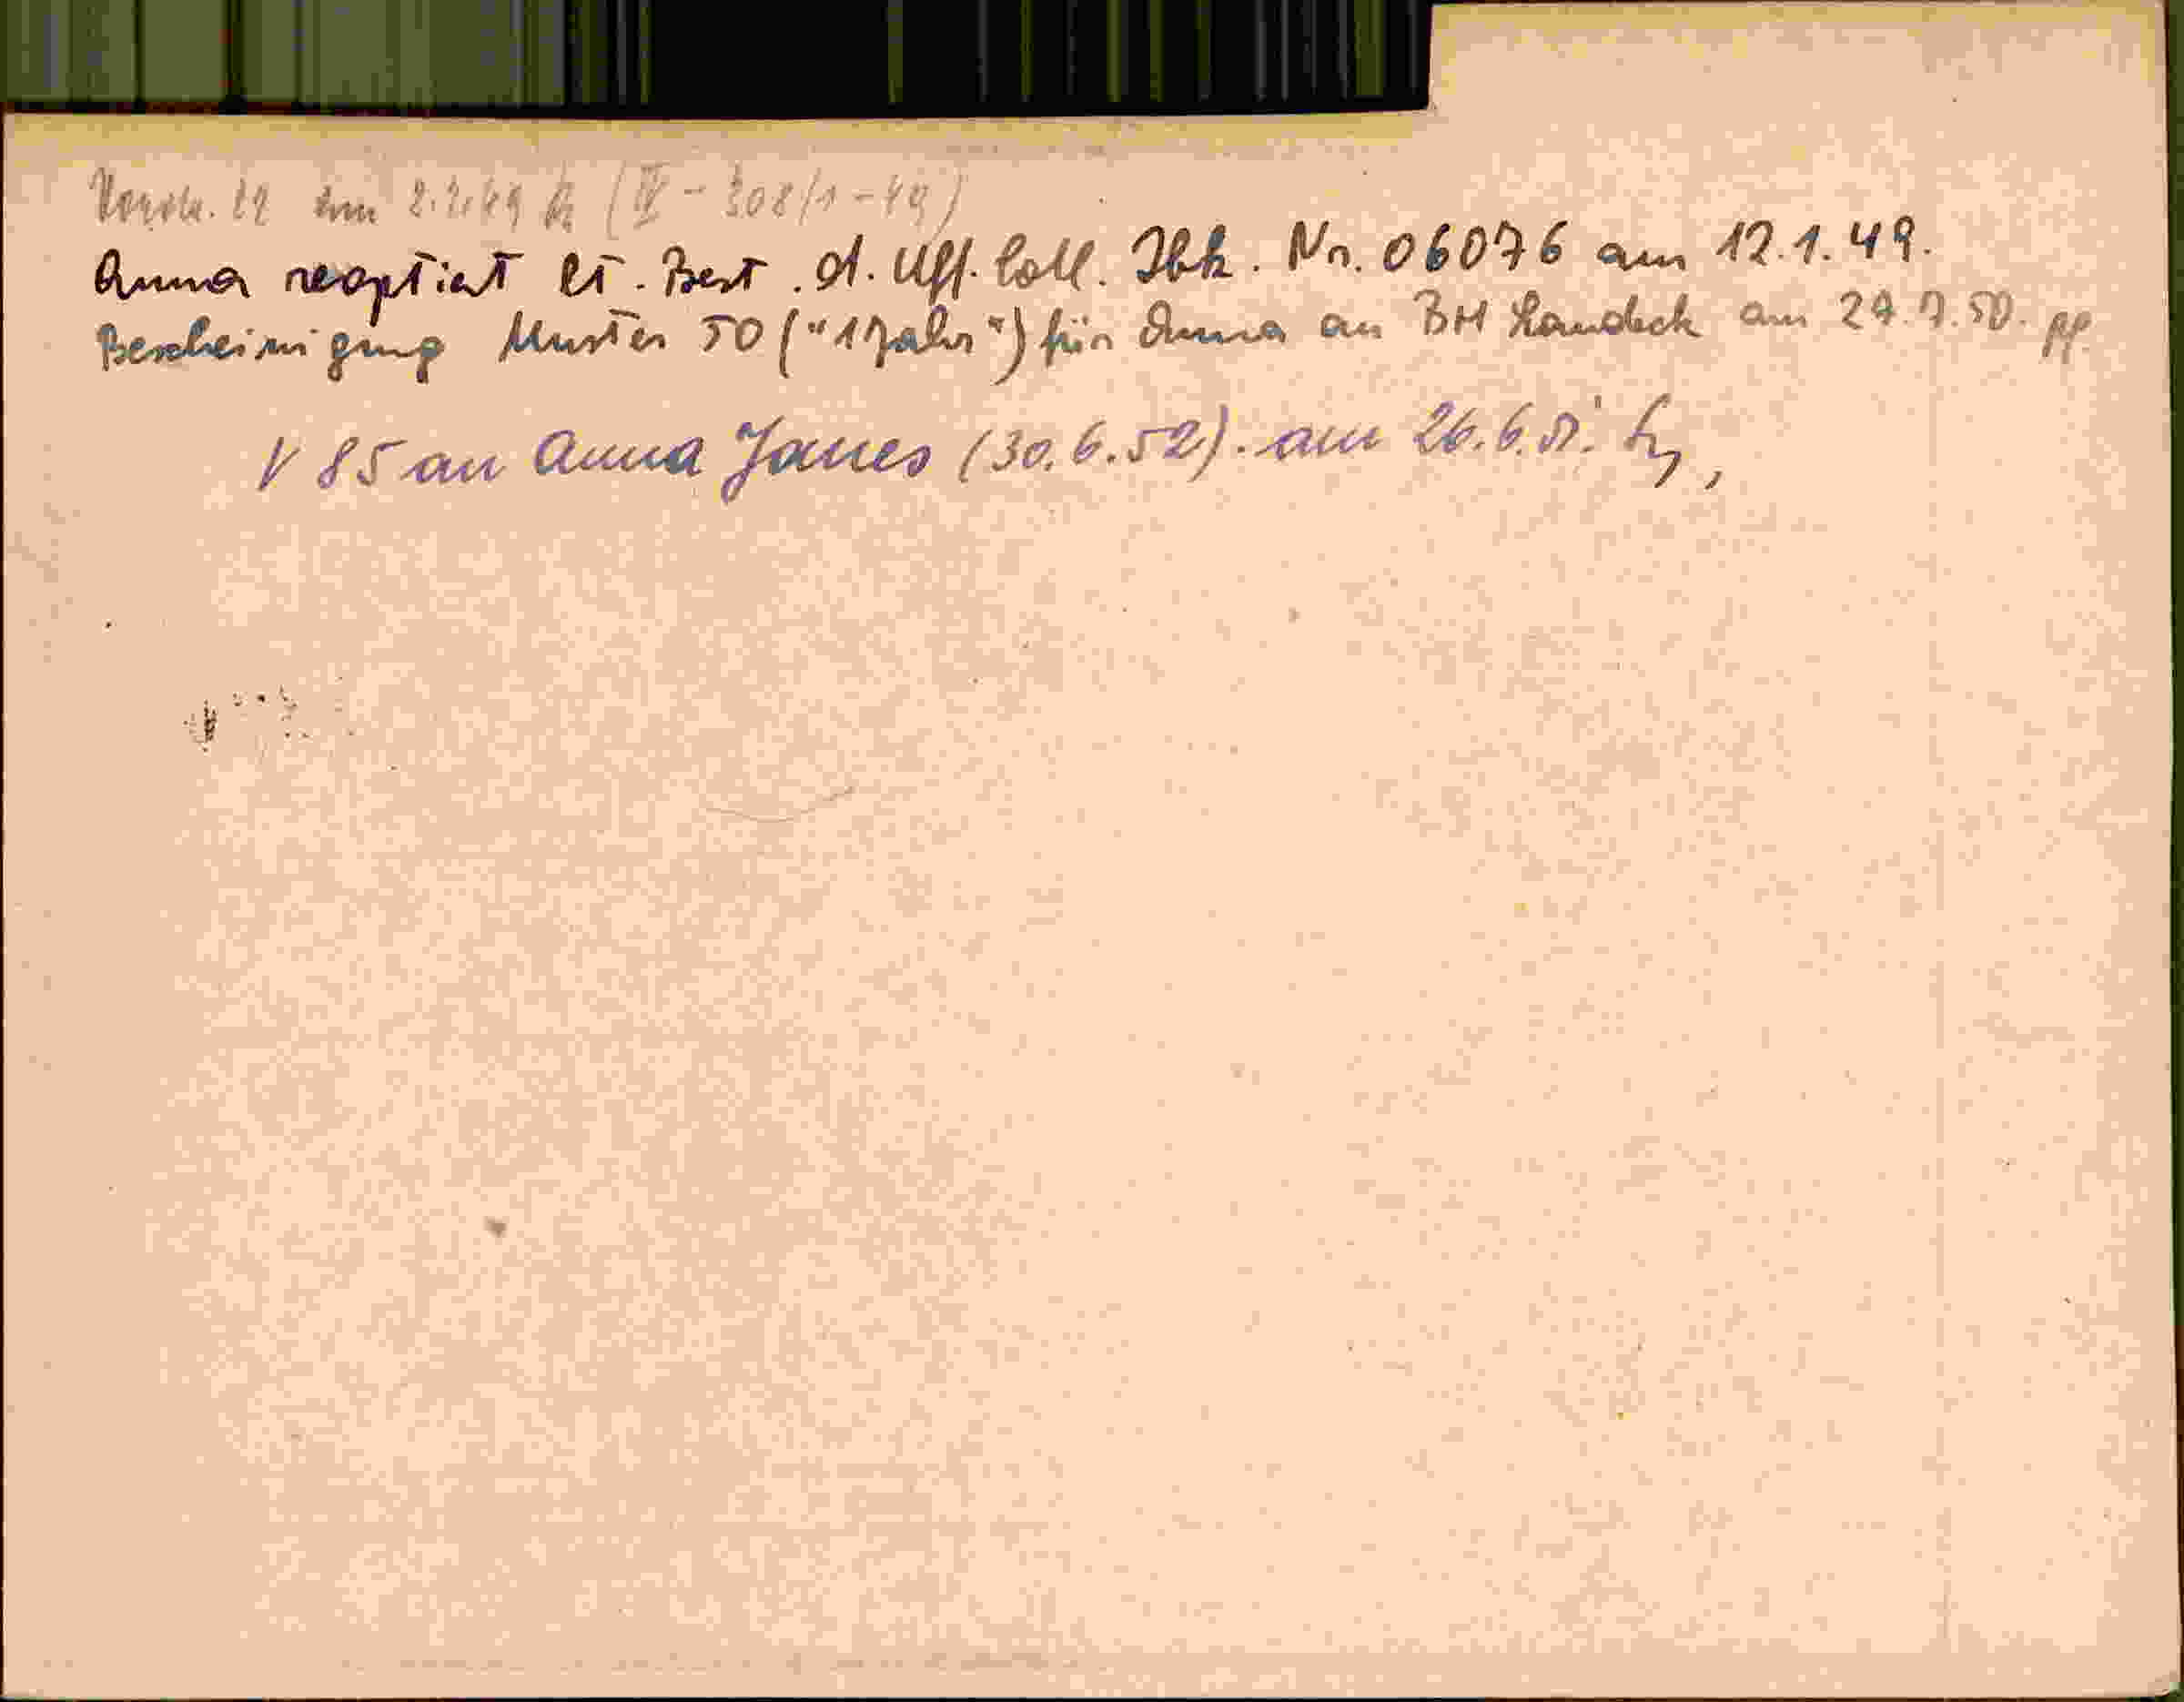 22 am 2.2.49 (IV - 308/1 - 49)
Anna reoptiert lt. Best. d. Uff. Coll. Ibk. Nr. 06076 am 12.1.49.
Bescheinigung Muster 50 ("1 Jahr") für Anna an BH Landeck am 27.7.50. pp.
V 85 an Anna Janes (30.6.52). am 26.6.51.